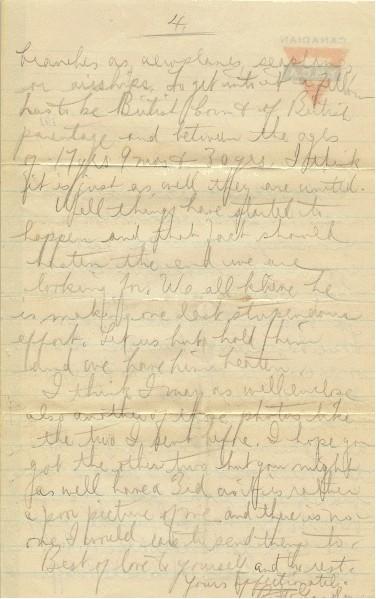 4.
CANADIAN
YMCA
branches as aeroplanes, seaplanes
or airships. To get into it a fellow
has to be British born & of British
parentage and between the ages
of 17 yrs 9 mos & 30 yrs. I think
it is just as well they are united.
Well things have started to
happen and that fact should
hasten the end we are
looking for. We all believe he
is making one last stupendous
effort. Let us but hold him
and we have him beaten.
I think I may as well enclose
also another of photos like
the two I sent before. I hope you
got the other two but you might
as well have a 3rd as it is rather
a poor picture of me and there is no
one I would care to send them to.
Best of love to yourself and the rest.
Yours affectionately